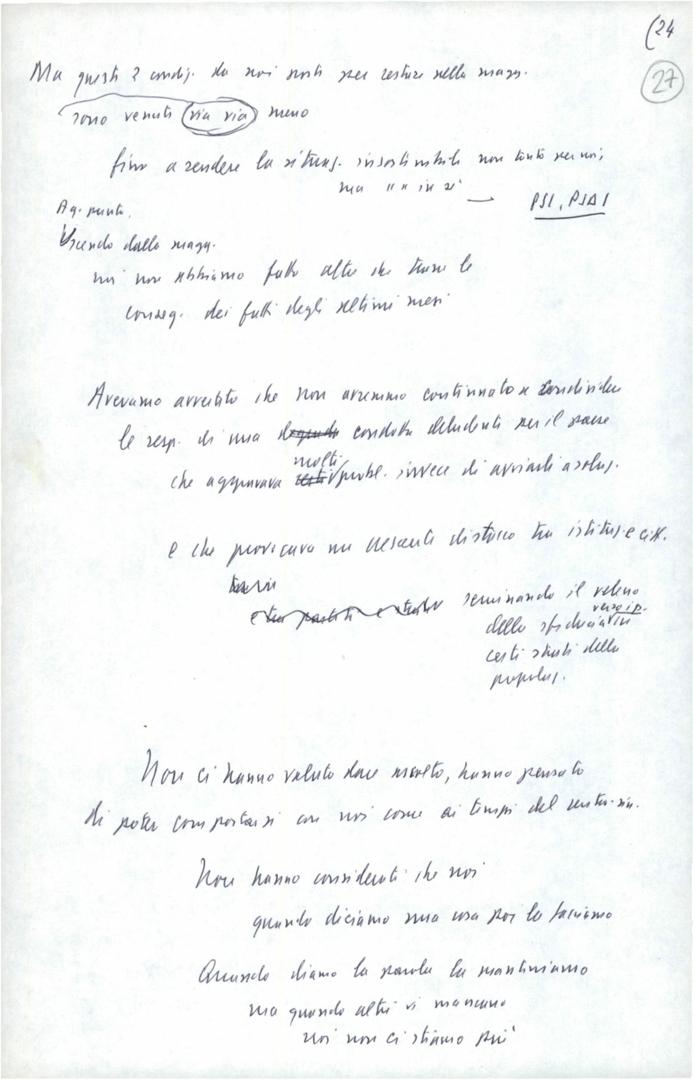 (24
27
Ma questi 2 condiz. da noi posti per restare nella magg.
sono venuti via via meno
fino a rendere la situaz. insostenibile non tanto per noi,
ma " " in sé — PSI, PSDI
Ag. punto.
Uscendo dalla magg.
noi non abbiamo fatto altro che trarre le
conseg. dei fatti degli ultimi mesi
Avevamo avvertito che non avremmo continuato a condividere
le resp. di una condotta deludente per il paese
molti
che aggravava probl. invece di avviarli a soluz.
e che provocava un crescente distacco tra istituz. e citt.
seminando il veleno
verso ip.
della sfiducia in
certi strati della
popolaz.
Non ci hanno voluto dare ascolto, hanno pensato
di poter comportarsi con noi come ai tempi del centro-sin.
Non hanno considerato che noi
quando diciamo una cosa poi la facciamo
Quando diamo la parola la manteniamo
ma quando altri vi mancano
noi non ci stiamo più